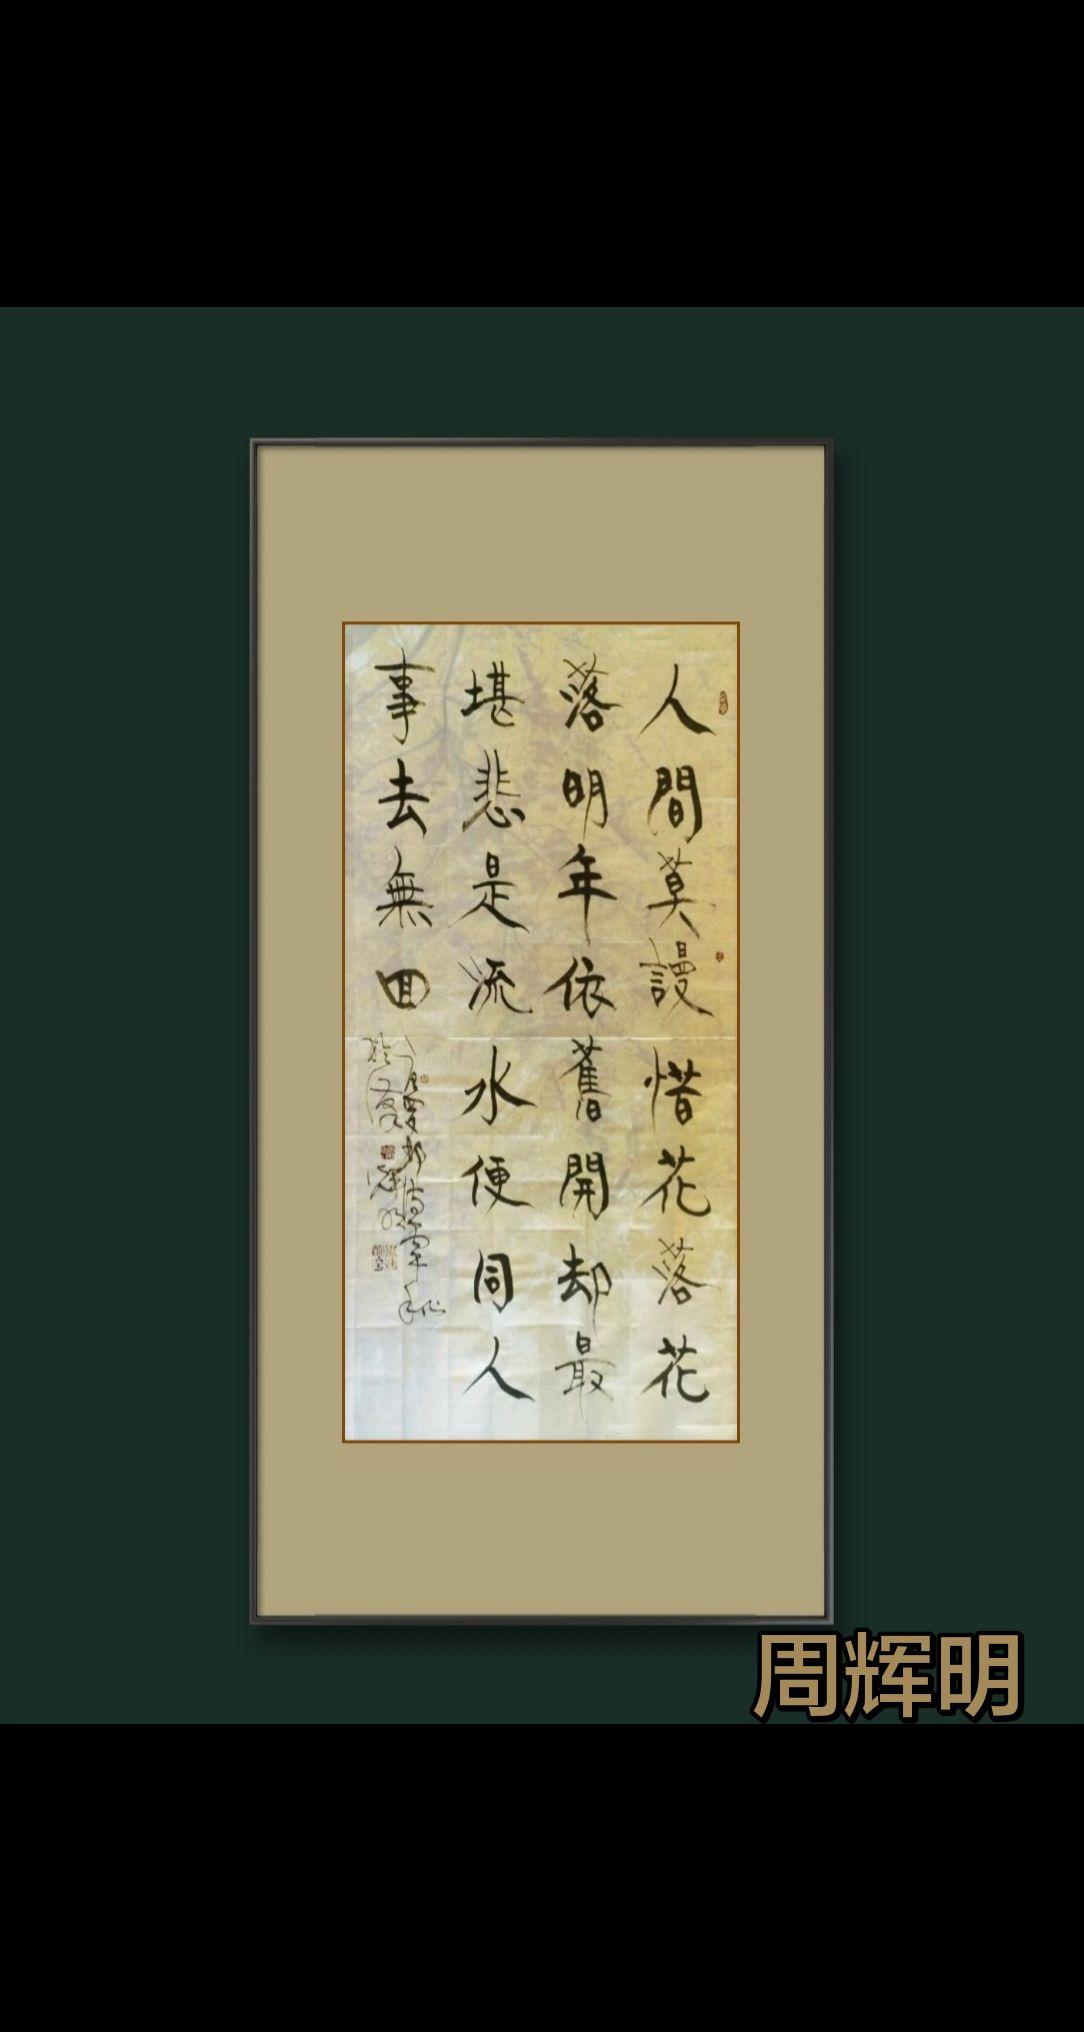 人間莫謾惜花落花
落明年依舊開却最
堪悲是流水便同人
事去無回
周辉明